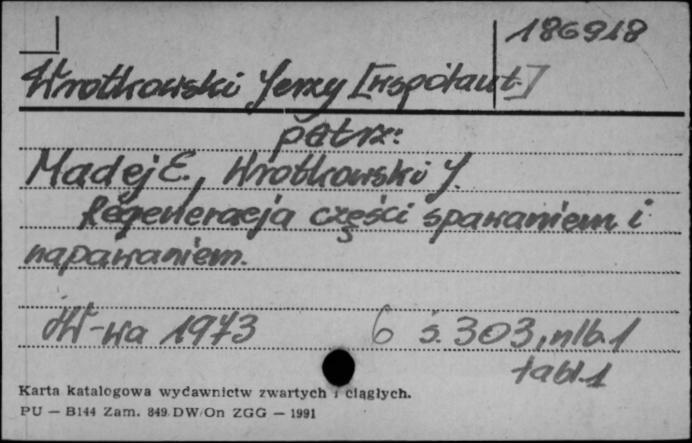 186918
Wrotkowski Jerzy [współaut.]
patrz:
Madej E., Wrotkowski J.
Regeneracja części spawaniem i
napawaniem.
W-wa 1973 6 s. 303, nlb. 1
tabl. 1
Karta katalogowa wydawnictw zwartych i ciągłych.
PU — B144 Zam. 849 DW/On ZGG — 1991